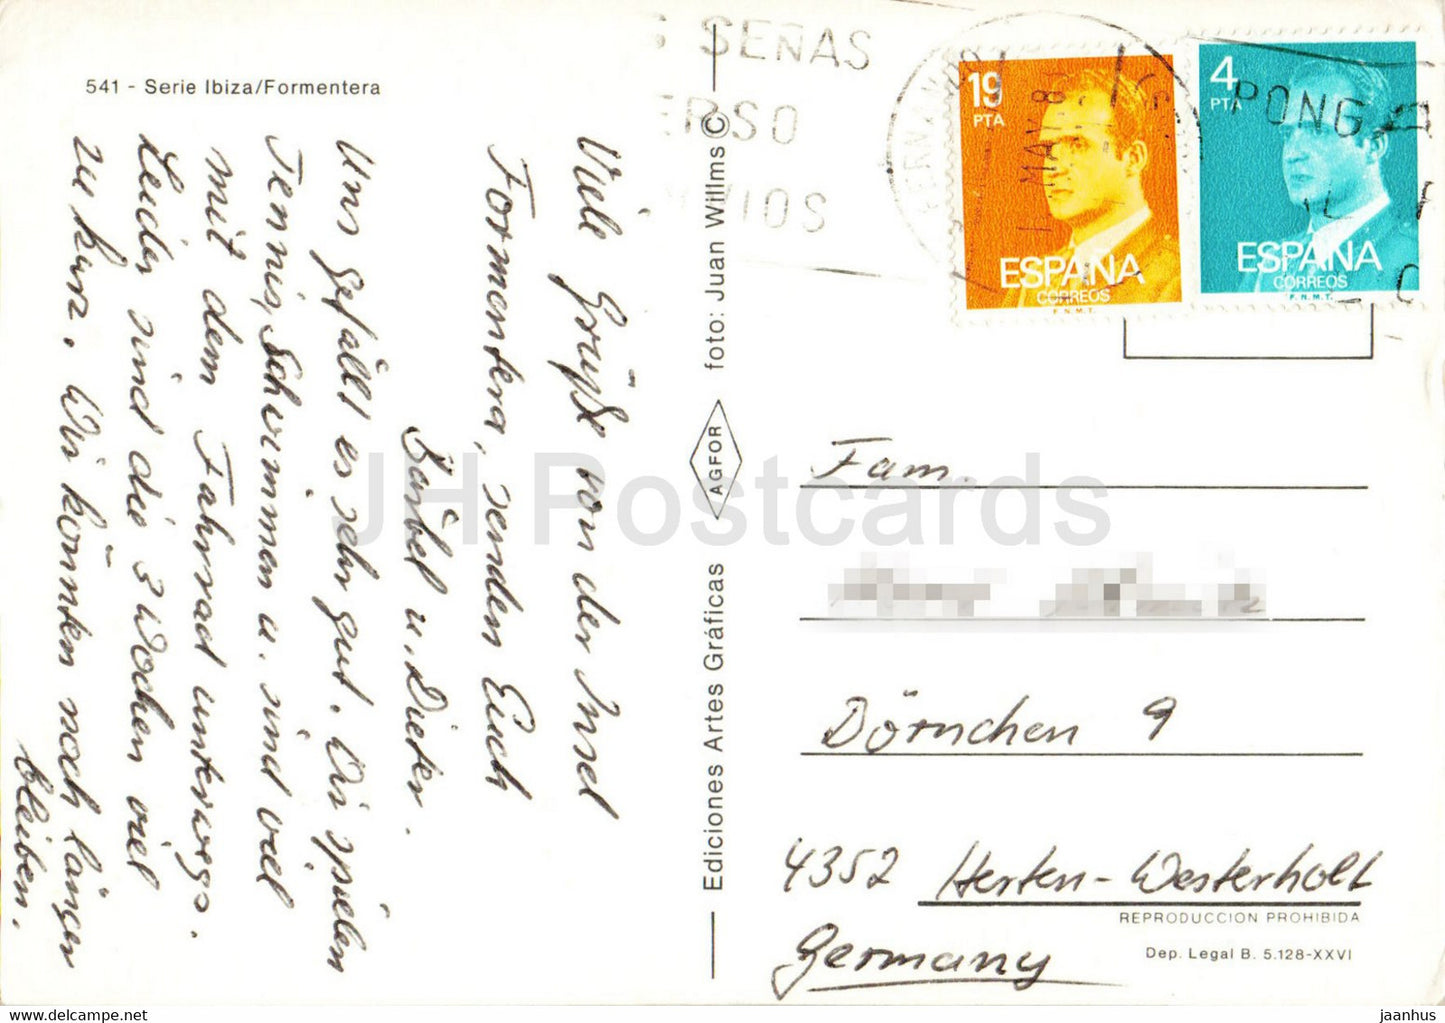 541 - Serie Ibiza/Formentera
Viele Grüße von der Insel
Formentera, senden Euch
Bärbel u. Dieter.
Uns gefällt es sehr gut. Wir spielen
Tennis, Schwimmen u. sind viel
mit dem Fahrrad unterwegs.
Leider sind die 3 Wochen viel
zu kurz. Wir könnten noch länger
bleiben.
Ediciones Artes Gráficas AGFOR foto: Juan Willms ©
S SEÑAS
ERSO
VIOS
PONG
MAY 8
19
PTA
ESPAÑA
CORREOS
F.N.M.T.
4
PTA
ESPAÑA
CORREOS
F.N.M.T.
Fam.
Dörnchen 9
4352 Herten-Westerholt
Germany
REPRODUCCION PROHIBIDA
Dep. Legal B. 5.128-XXVI
JH Postcards
www.jhpostcards.com
jaanhus